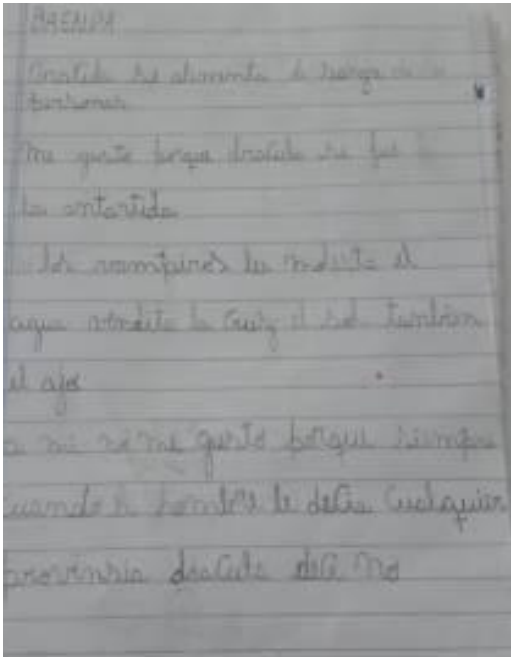 BRENDA
Dracula se alimenta de sangre de las
personas
me gusto porque dracula se fue a
la antartida
los vampiros les molesta el
agua vendita la cruz el sol tambien
el ajo
a mi no me gusto porque siempre
cuando el hombre le decia cualquier
provinsia dracula deci no